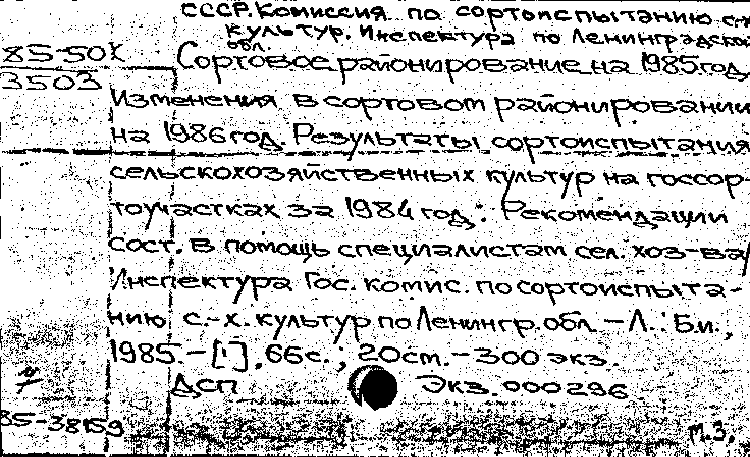 СССР. Комиссия по сортоиспытанию с-х
культур. Инспектура по Ленинградской
обл.
85-50х
3503
Сортовое районирование на 1985 год,
Изменения в сортовом районировании
на 1986 год. Результаты сортоиспытания
сельскохозяйственных культур на госсор-
тоучастках за 1984 год: Рекомендации
сост. в помощь специалистам сел. хоз-ва/
Инспектура Гос. комис. по сортоиспыта-
нию с.-х. культур по Ленингр. обл. – Л.: Б.и.,
1985. – [1], 66с.; 20см. – 300 экз.
ДСП Экз. 000296
85-38159
М.З.